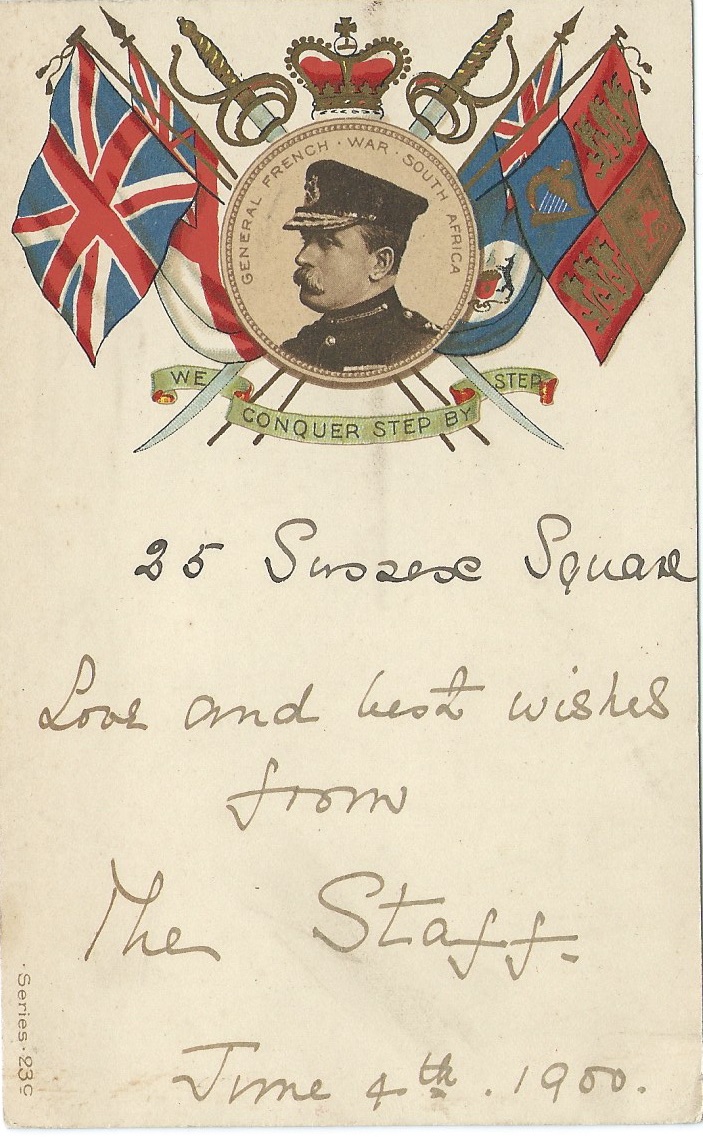 GENERAL FRENCH · WAR · SOUTH AFRICA
WE CONQUER STEP BY STEP
25 Sussex Square
Love and best wishes
from
The Staff.
June 4th. 1900.
· Series · 239